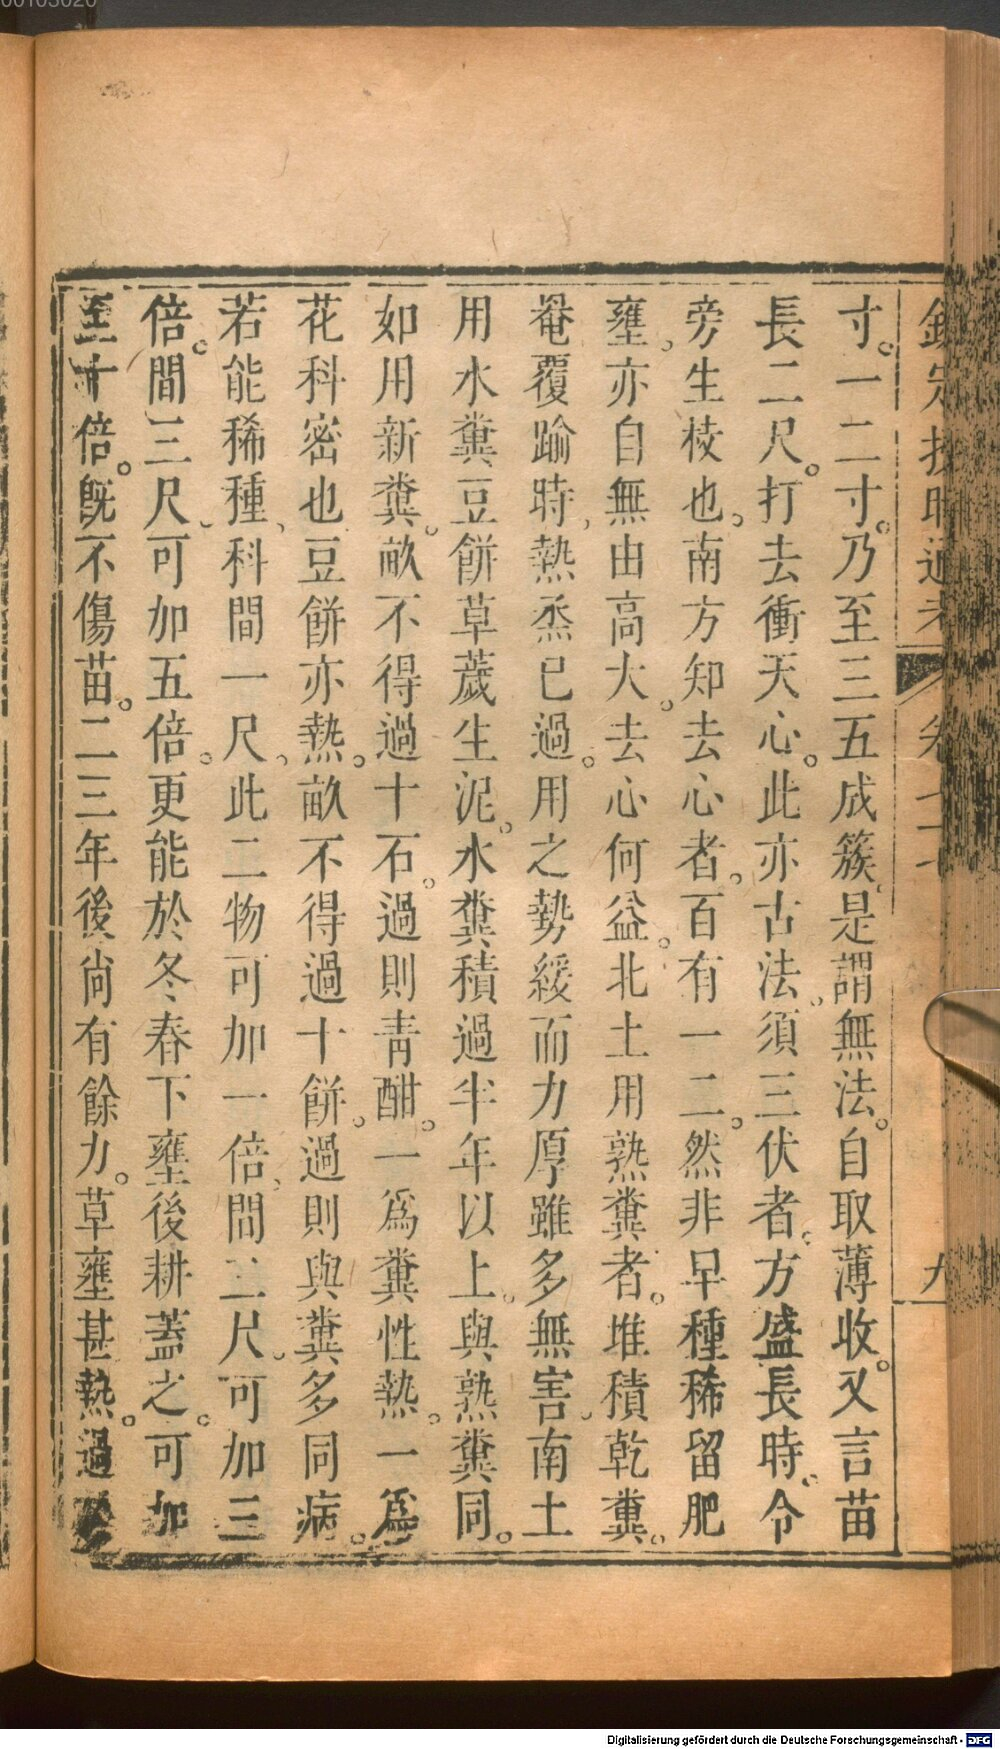 00103020
欽定授時通考 卷七十七 九
寸。一二寸。乃至三五成簇。是謂無法。自取薄收。又言苗
長二尺。打去衝天心。此亦古法。須三伏者。方盛長時。令
旁生枝也。南方知去心者。百有一二。然非早種稀留肥
壅。亦自無由高大。去心何益。北土用熟糞者。堆積乾糞。
罨覆踰時。熱烝已過。用之勢緩而力厚雖多無害。南土
用水糞豆餅草薉生泥。水糞積過半年以上。與熟糞同。
如用新糞。畝不得過十石。過則靑酣。一爲糞性熱。一爲
花科密也豆餅亦熱。畝不得過十餅。過則與糞多同病。
若能稀種。科間一尺。此二物可加一倍。間二尺。可加三
倍。間三尺。可加五倍。更能於冬春下壅後耕蓋之。可加
至十倍。旣不傷苗。二三年後尙有餘力。草壅甚熱。過
Digitalisierung gefördert durch die Deutsche Forschungsgemeinschaft - DFG